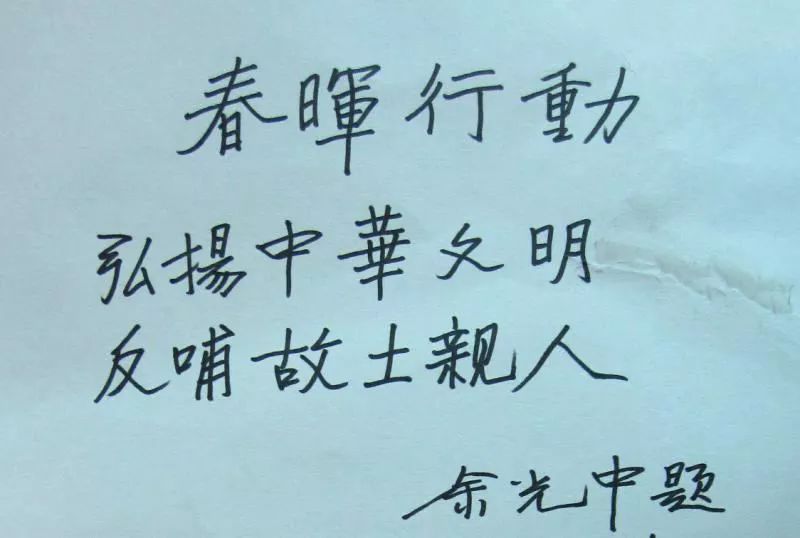 春暉行動
弘揚中華文明
反哺故土親人
余光中題